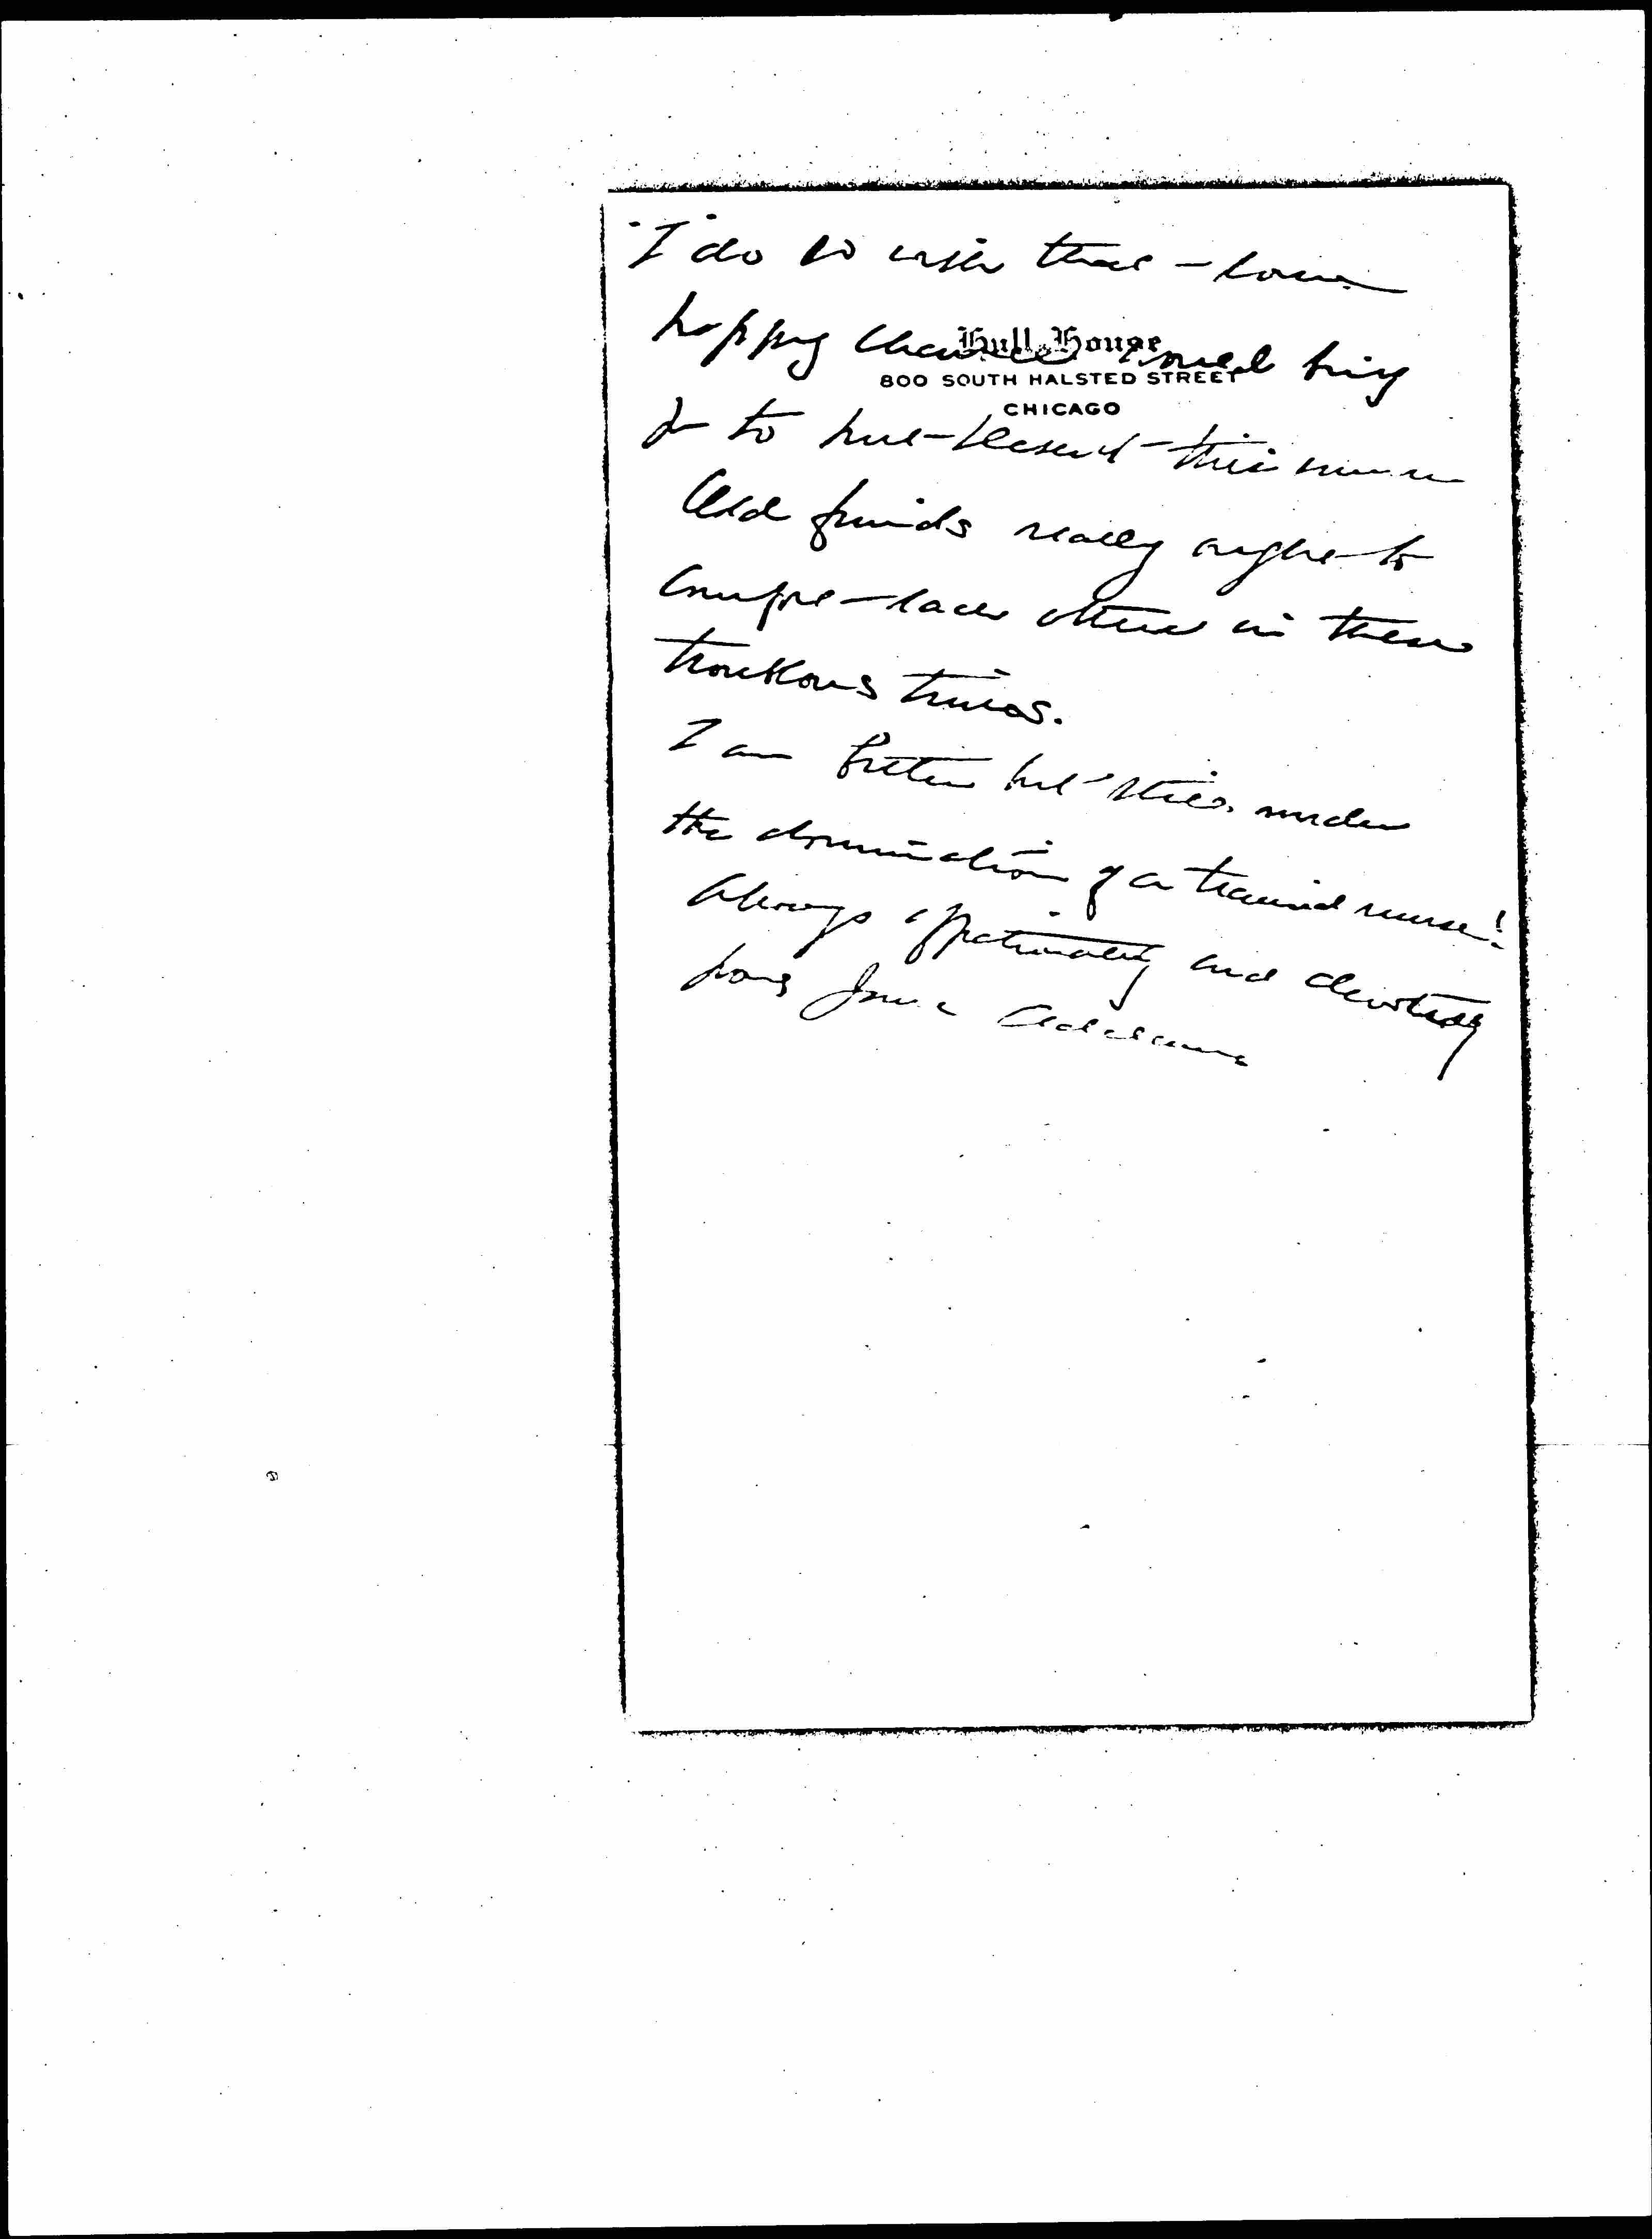 I do so wish that some
happy chance would bring
Hull House
800 SOUTH HALSTED STREET
CHICAGO
to this
Old friends really ought to
comfort each other in these
troublous times.
I am better but still under
the domination of a trained nurse!
Always affectionately and devotedly
yours Jane Addams